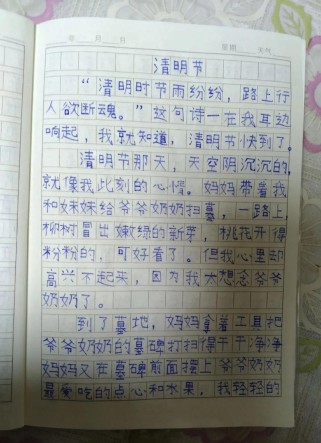 年 月 日 星期 天气
清明节
“清明时节雨纷纷，路上行
人欲断魂。”这句诗一在我耳边
响起，我就知道，清明节快到了。
清明节那天，天空阴沉沉的，
就像我此刻的心情。妈妈带着我
和妹妹给爷爷奶奶扫墓，一路上，
柳树冒出嫩绿的新芽，桃花开得
粉粉的，可好看了。但我心里却
高兴不起来，因为我太想念爷爷
奶奶了。
到了墓地，妈妈拿着工具把
爷爷奶奶的墓碑打扫得干干净净，
妈妈又在墓碑前面摆上爷爷奶奶
最爱吃的点心和水果，我轻轻的